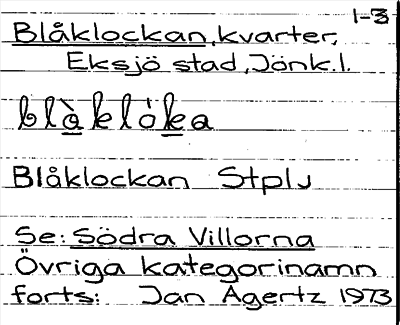 1-3
Blåklockan, kvarter,
Eksjö stad, Jönk.l.
blàklóka
Blåklockan Stpl
Se: Södra Villorna
Övriga kategorinamn
forts: Jan Agertz 1973